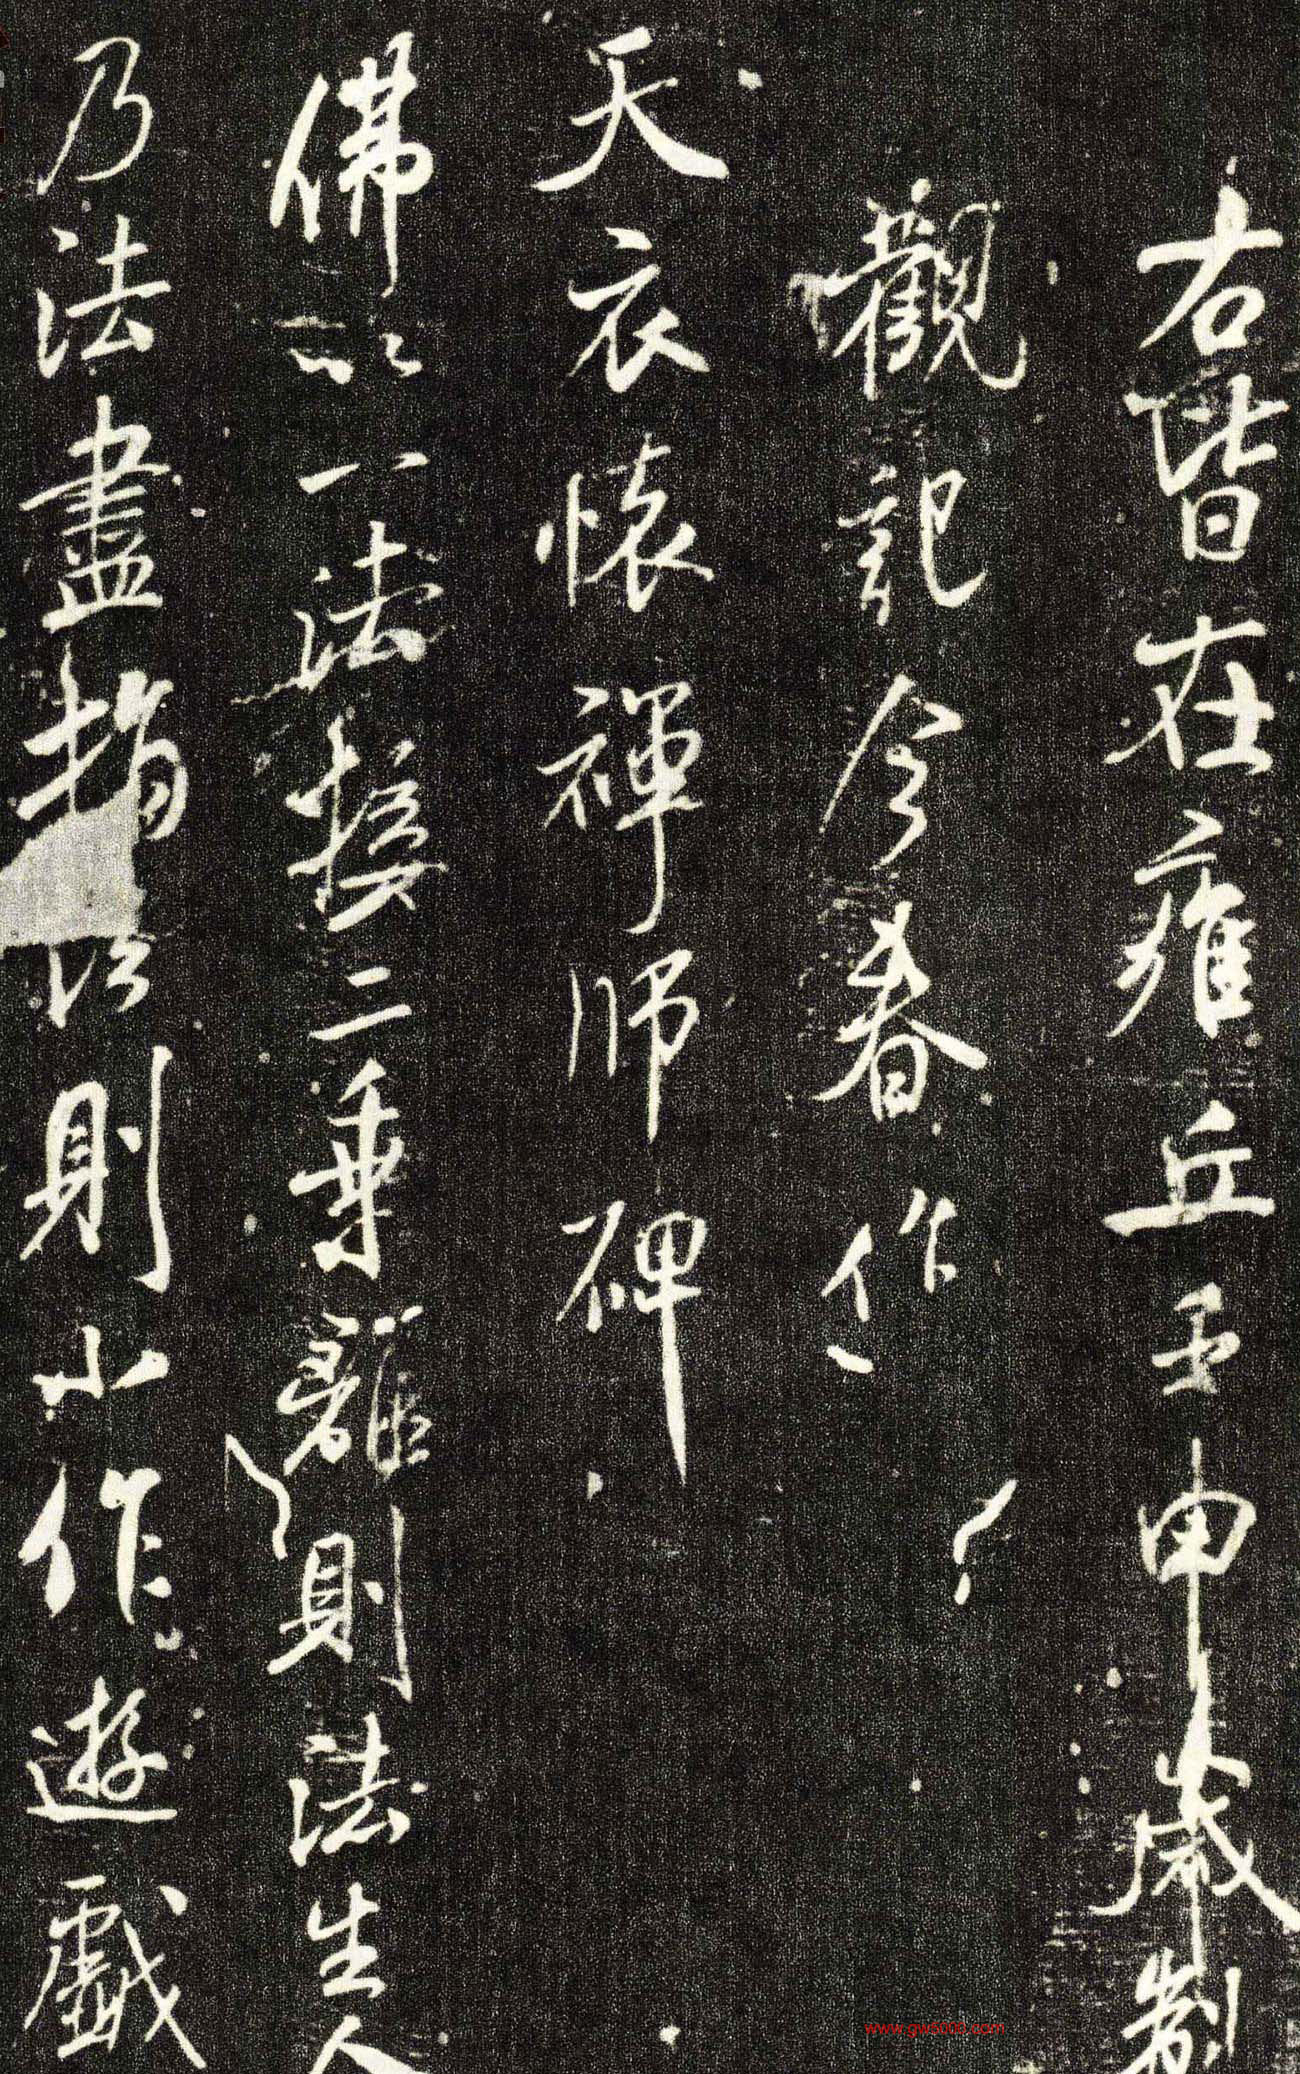 右皆在雍丘壬申歲制
觀記今春作
天衣懷禪師碑
佛以一法接二乘離則法生人
乃法盡指法則小作遊戲
www.gw5000.com